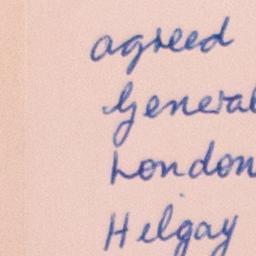 agreed
General
London
Hilgay